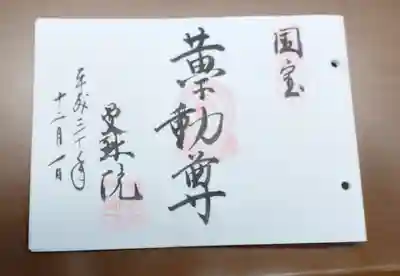 国宝
黄不動尊
曼殊院
平成三十年
十二月一日